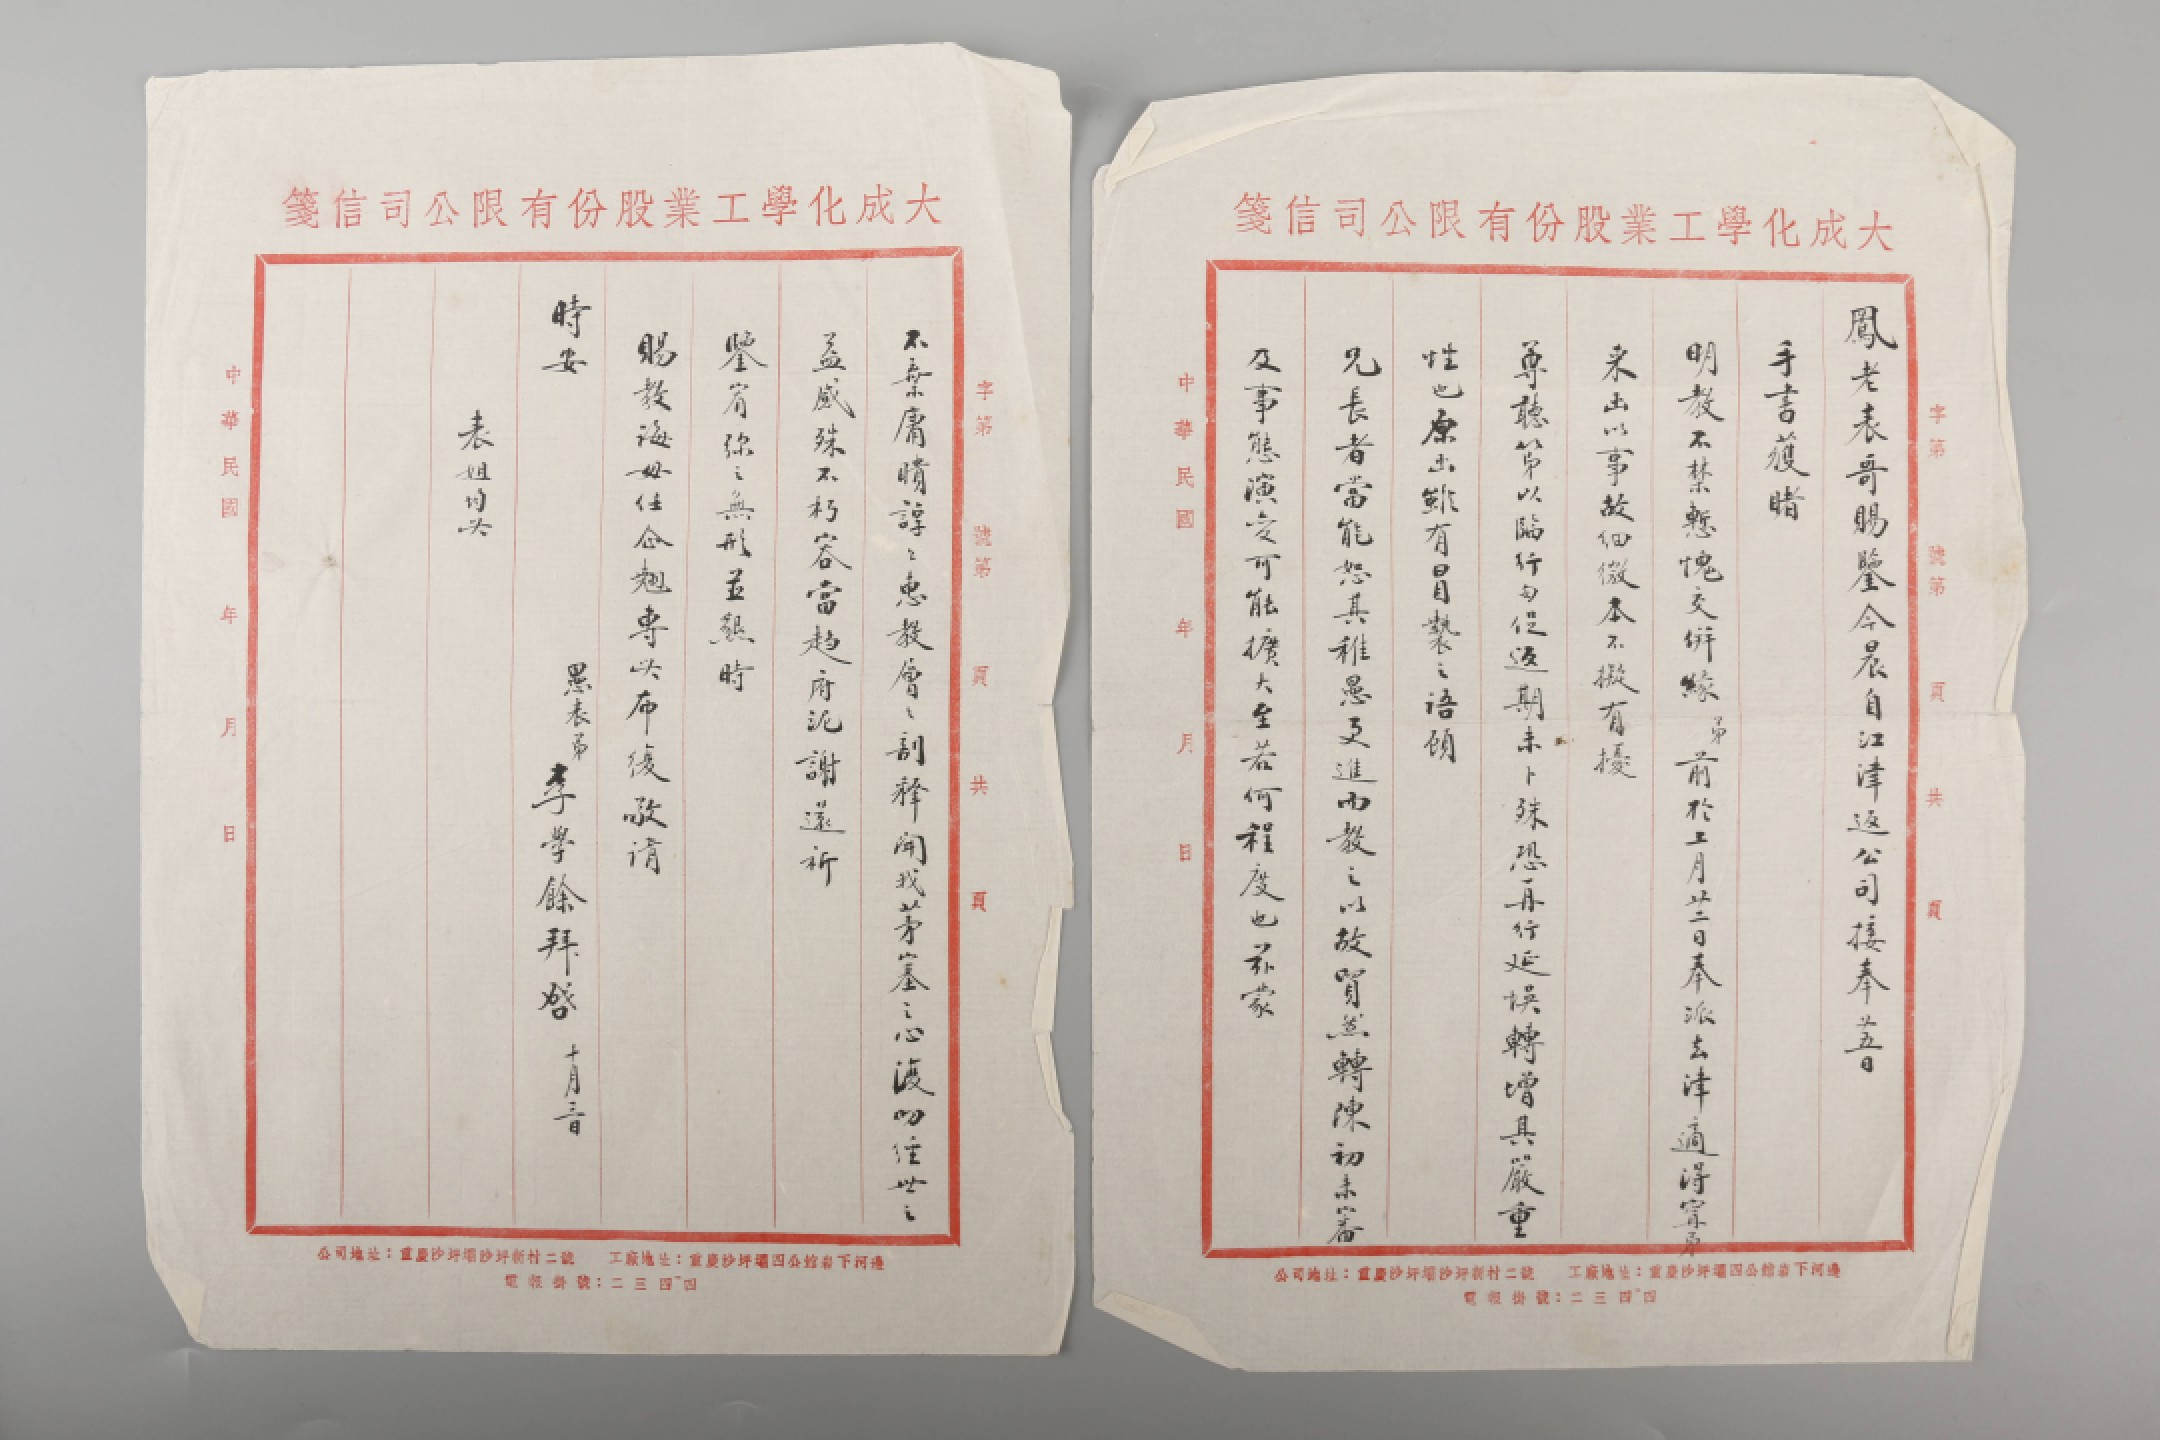 大成化學工業股份有限公司信箋
字第　號第　頁共　頁
鳳老表哥賜鑒今晨自江津返公司接奉廿五日
手書獲睹
明教不禁慙愧交併緣弟前於上月廿二日奉派去津適得家弟
来出以事故細微本不擬有擾
尊聽第以臨行匆促返期未卜殊恐再行延悞轉增其嚴重
性也原出雖有冒褻之語顧
兄長者當能恕其稚愚更進而教之以故貿然轉陳初未審
及事態演变可能擴大至若何程度也茲蒙
中華民國　年　月　日
公司地址：重慶沙坪壩沙坪新村二號　工廠地址：重慶沙坪壩四公館岩下河邊
電報掛號：二三四四
大成化學工業股份有限公司信箋
字第　號第　頁共　頁
不棄庸聵諄々惠教層々剖釋開我茅塞之心濩吻往世之
益感殊不朽容當趋府泥謝還祈
鑒宥弥之無形並懇時
賜教誨毋任企翹專此布復敬請
時安
愚表弟李學餘拜啓 十月三日
表姐均此
中華民國　年　月　日
公司地址：重慶沙坪壩沙坪新村二號　工廠地址：重慶沙坪壩四公館岩下河邊
電報掛號：二三四四